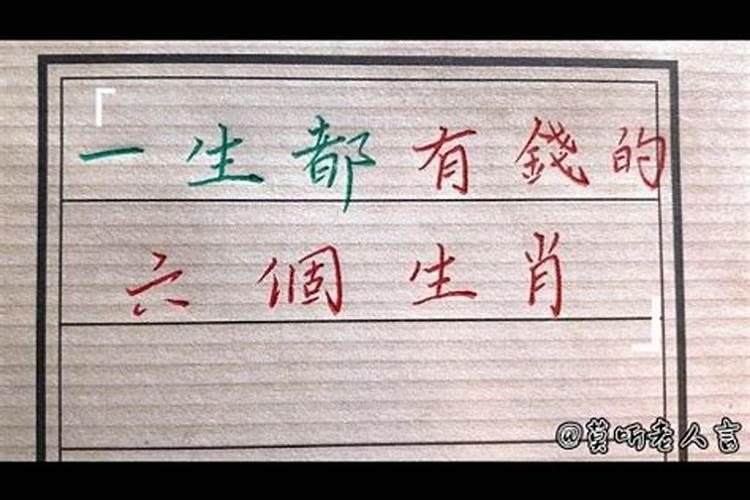 一生都有錢的
六個生肖
@莫听老人言